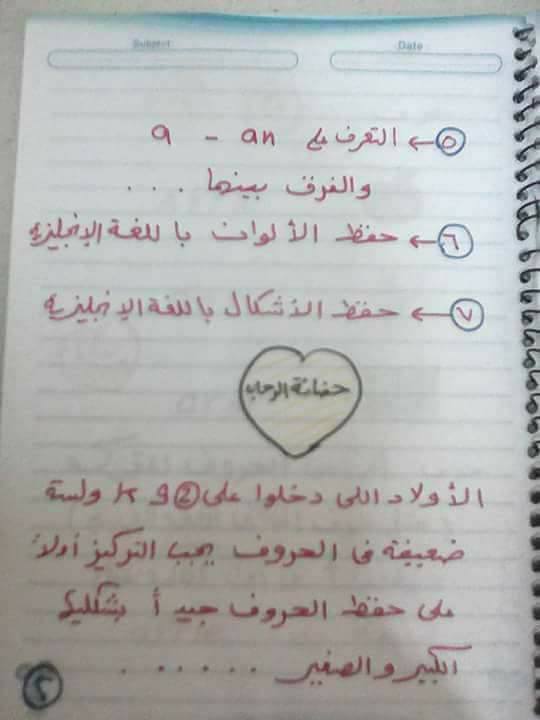 Subject
Date
٥ ← التعرف على a - an
والفرق بينهما . . .
٦ ← حفظ الألوان باللغة الإنجليزيه
٧ ← حفظ الأشكال باللغة الإنجليزيه
حضانة الرحاب
الأولاد اللى دخلوا على kg ② ولسة
ضعيفة فى الحروف يجب التركيز أولاً
على حفظ الحروف جيداً بشكليها
الكبير والصغير . . . . . .
٢